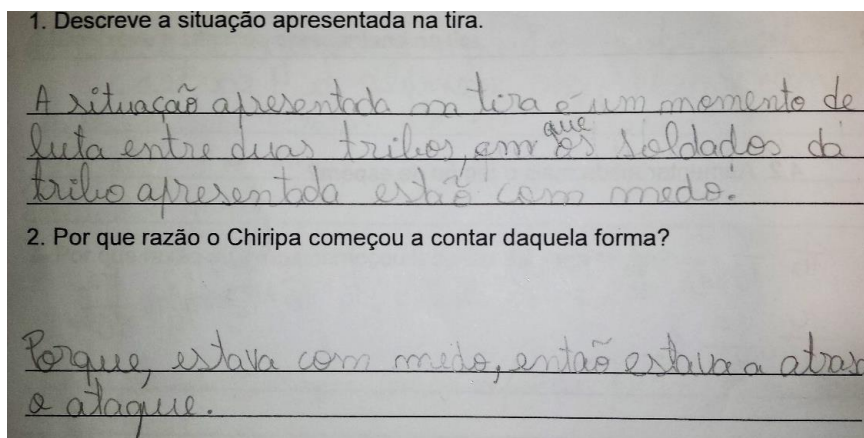 1. Descreve a situação apresentada na tira.
A situação apresentada na tira é um momento de
luta entre duas tribos, em que os soldados da
tribo apresentada estão com medo.
2. Por que razão o Chiripa começou a contar daquela forma?
Porque, estava com medo, então estava a atras
o ataque.